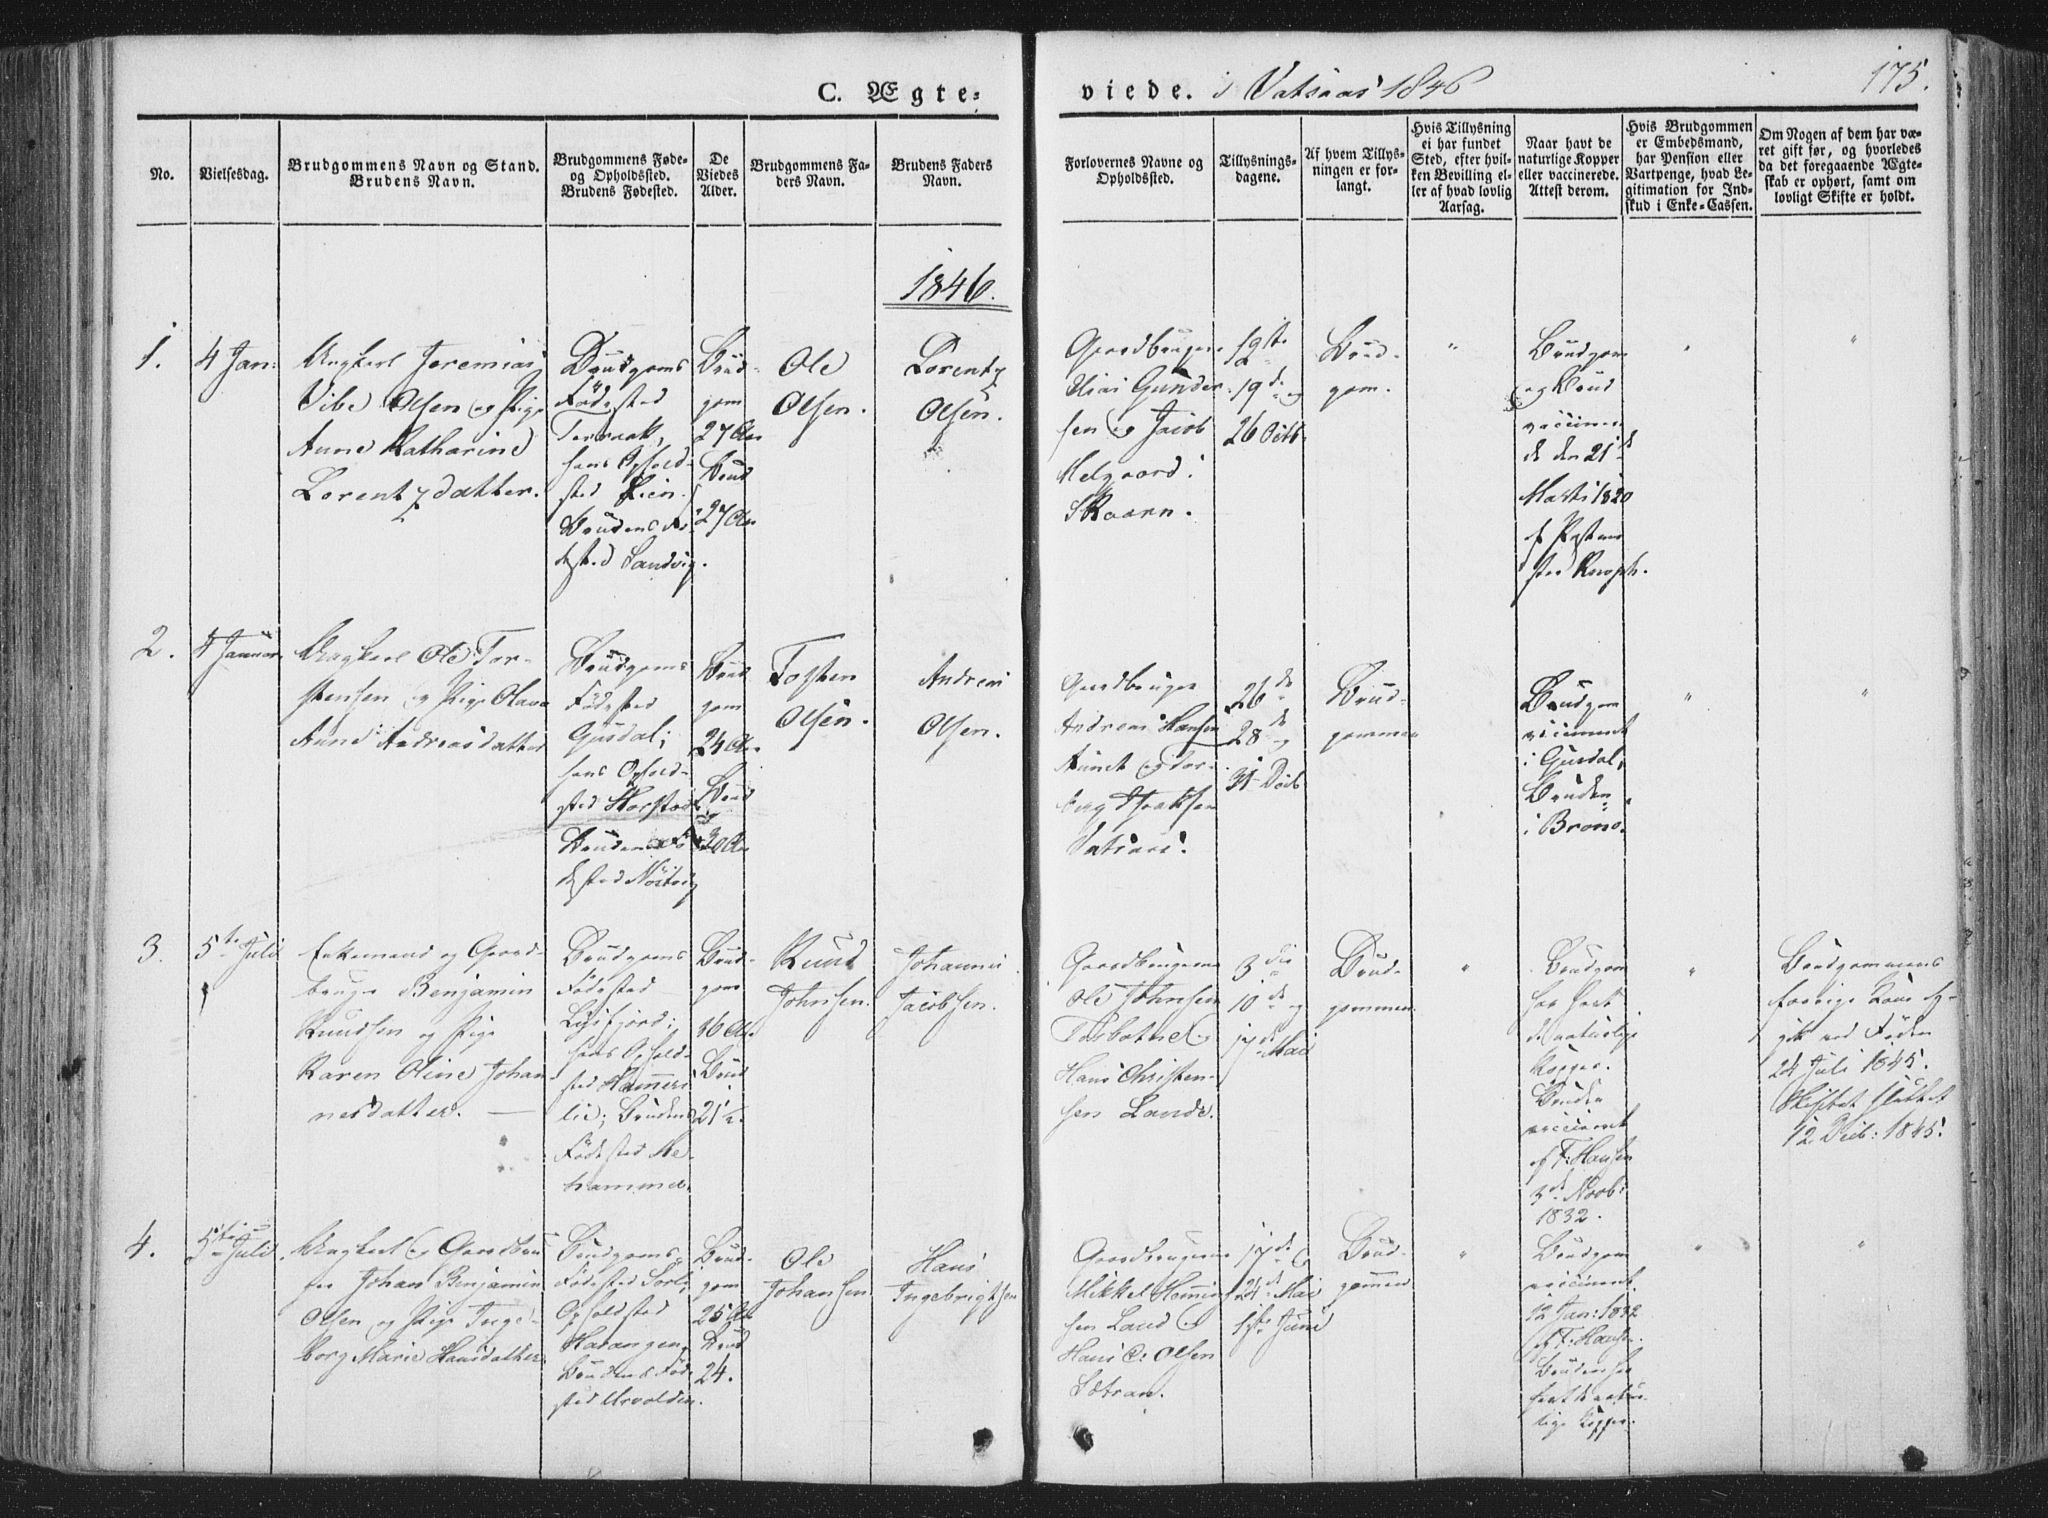 C. Ægte-
viede. i Vatsaas 1846
175.
No.
Vielsesdag.
Brudgommens Navn og Stand.
Brudens Navn.
Brudgommens Føde-
og Opholdssted.
Brudens Fødested.
De
Viedes
Alder.
Brudgommens Fa-
ders Navn.
Brudens Faders
Navn.
Forlovernes Navne og
Opholdssted.
Tillysnings-
dagene.
Af hvem Tillys-
ningen er for-
langt.
Hvis Tillysning
ei har fundet
Sted, efter hvil-
ken Bevilling el-
ler af hvad lovlig
Aarsag.
Naar havt de
naturlige Kopper
eller vaccinerede.
Attest derom.
Hvis Brudgommen
er Embedsmand,
har Pension eller
Vartpenge, hvad Le-
gitimation for Ind-
skud i Enke-Cassen.
Om Nogen af dem har væ-
ret gift før, og hvorledes
da det foregaaende Ægte-
skab er ophørt, samt om
lovligt Skifte er holdt.
1846.
1.
4 Jan:
Ungkarl Jeremias
Vibe Olsen og Pige
Anne Katharine
Lorentzdatter.
Brudgoms
Födested
Terraak,
hans Ophold-
sted
Brudens Fö-
dested Sandvig.
Brud-
gom
27 Aar
Brud
27 Aar
Ole
Olsen.
Lorentz
Olsen.
Gaardbruger
Elias Gunder-
sen og Jacob
Melgaard
Skaarn.
12te
19de og
26 Octb
Brud-
gom.
"
Brudgom
og Brud
vaccinere-
de den 21de
Marts 1820
af Præstens
sted Knoph.
"
"
2.
4 Januar
Ungkarl Ole Tor-
stensen og Pige Olava
Anne Andreasdatter
Brudgoms
Födested
Gusdal;
hans Ophold-
sted Horstad
Brudens Fö-
dested Nöstvig
Brud
gom
24 Aar
Brud
30 Aar
Tosten
Olsen.
Andreas
Olsen.
Gaardbruger
Andreas Hansen
Aunet og Tor-
berg Isaksen
Vatsaas.
26de
28de og
31 Decb
Brud-
gommen
Brudgom
vaccineret
i Gusdal,
Bruden
i Brønø.
"
"
3.
5te Juli
Enkemand og Gaard-
bruger Benjamin
Knudsen og Pige
Karen Oline Johan-
nesdatter.
Brudgoms
Födested
Lysfjord;
hans Ophold-
sted Hammers-
lie; Brudens
Födested Me-
hammer
Brud-
gom
Aar
Brud
21½.
Knud
Johnsen.
Johannes
Jacobsen.
Gaardbrugerne
Ole Johnsen
Tosbotne og
Hans Christen-
sen Lande.
3die
10de og
17de Mai
Brud-
gommen
"
Brudgom
har havt
de naturlige
Kopper.
Bruden
vaccineret
af F: Hansen
3de Novb:
1832.
"
Brudgommens
forrige Kone
24 Juli 1845.
Skiftet sluttet
12 Decb: 1845.
4.
5te Juli
Ungkarl og Gaardbru-
ger Johan Benjamin
Olsen og Pige Inge-
borg Marie Hansdatter
Brudgoms
Födested Sorli;
Opholdsted
Harangen;
Brudens Föde-
sted Urvolden.
Brud-
gom
25 Aar
Brud
24.
Ole
Johansen
Hans
Ingebrigtsen
Gaardbrugerne
Mikkel Hemming-
sen Land og
Hans C: Olsen
Sætran.
17de og
24de Mai
1ste Juni
Brud-
gommen
"
Brudgom
vaccineret
12 Jan: 1832
af F. Hansen.
Bruden har
havt de natur-
lige Kopper.
"
"